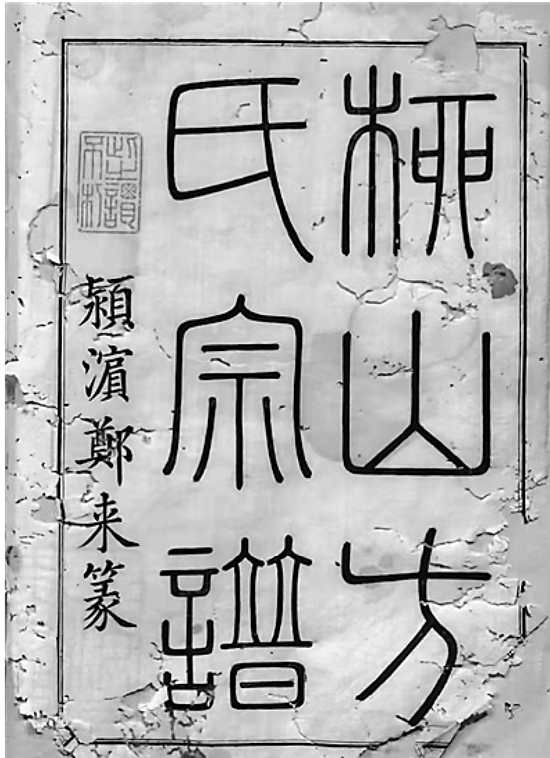 桺山方
氏宗譜
潁濵鄭来篆